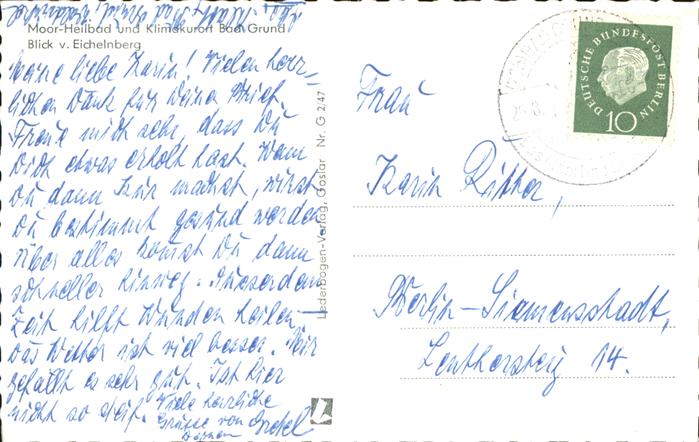 Moor-Heilbad und Klimakurort Bad Grund
Blick v. Eichelnberg
Meine liebe Karin! Vielen herz-
lichen Dank für Deinen Brief.
Freue mich sehr, dass Du
Dich etwas erholt hast. Wenn
Du dann Kur machst, wirst
Du bestimmt gesund werden
über alles kommst Du dann
schneller hinweg. Ausserdem
Zeit hilft Wunden heilen-
Das Wetter ist viel besser. Mir
gefällt es sehr gut. Ist hier
nicht so steif. Viele herzliche
Grüsse von Gretel
Lederbogen-Verlag, Goslar Nr. G 2/47
DEUTSCHE BUNDESPOST BERLIN
10
Frau
Karin Ritter,
Berlin-Siemensstadt,
Lenthersteig 14.